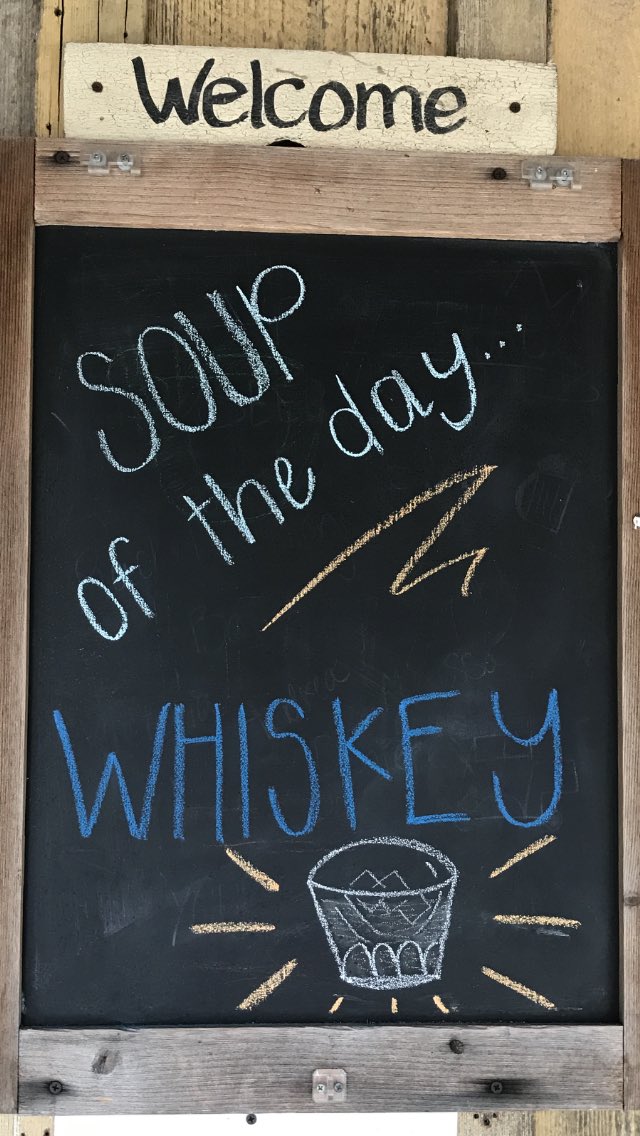 Welcome
SOUP
of the day...
WHISKEY